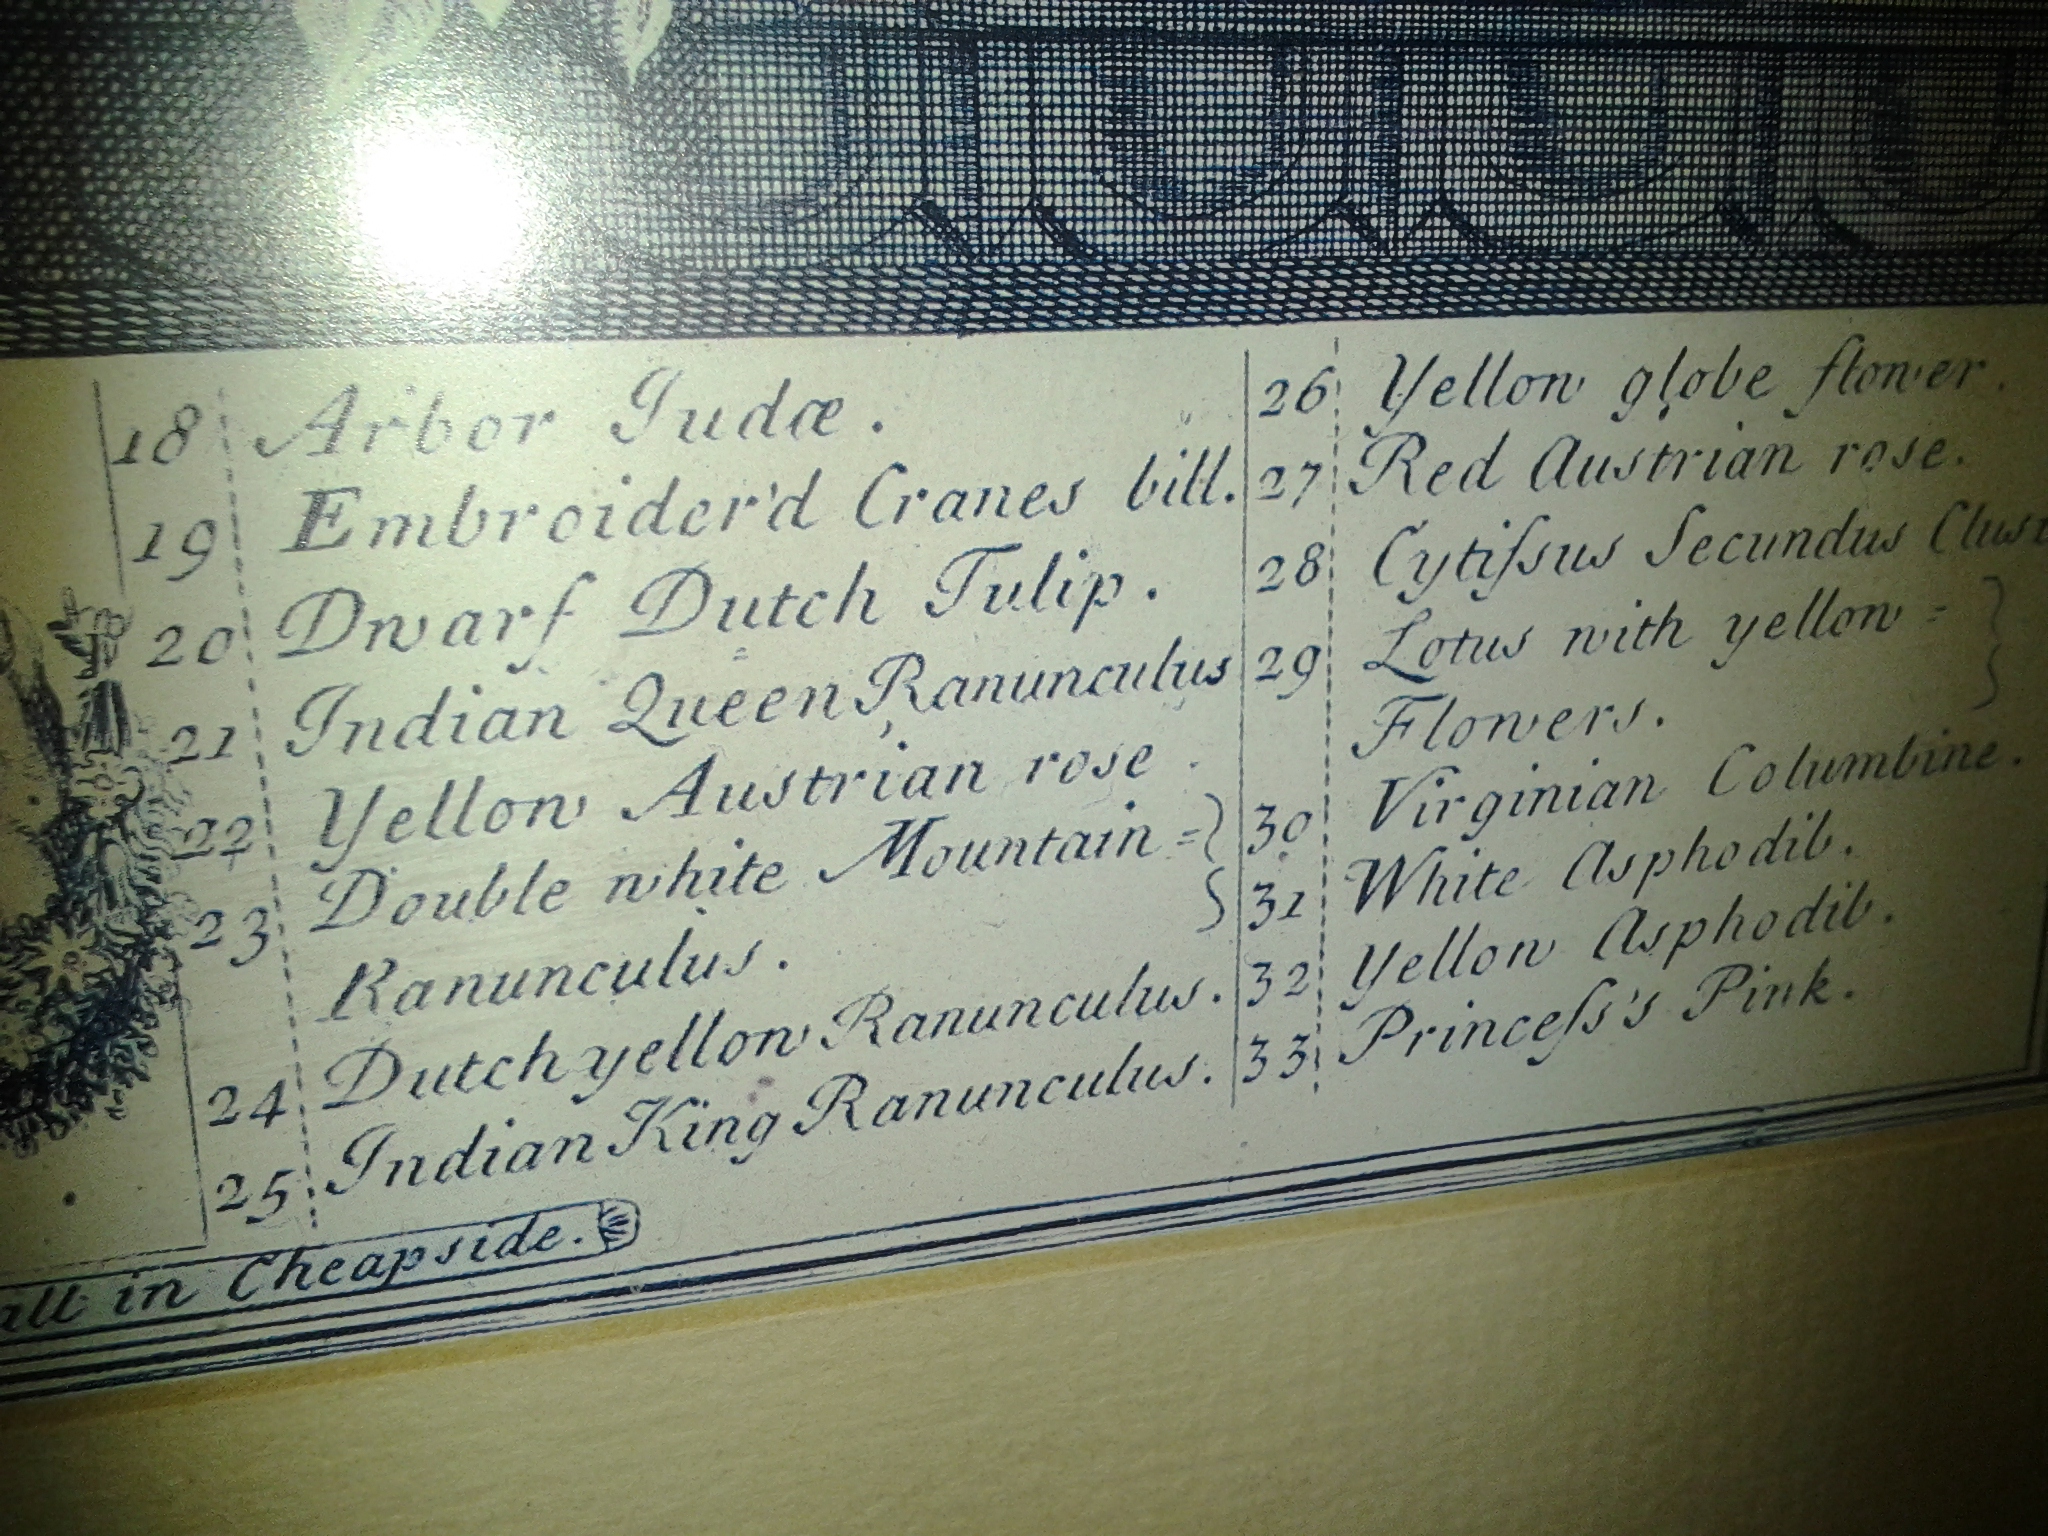 18 Arbor Judæ.
19 Embroider'd Cranes bill.
20 Dwarf Dutch Tulip.
21 Indian Queen Ranunculus
22 Yellow Austrian rose.
23 Double white Mountain =
Ranunculus.
24 Dutch yellow Ranunculus.
25 Indian King Ranunculus.
26 Yellow globe flower.
27 Red Austrian rose.
28 Cytiſsus Secundus Clust
29 Lotus with yellow =
Flowers.
30 Virginian Columbine.
31 White Asphodil.
32 Yellow Asphodil.
33 Princeſs's Pink.
in Cheapside.